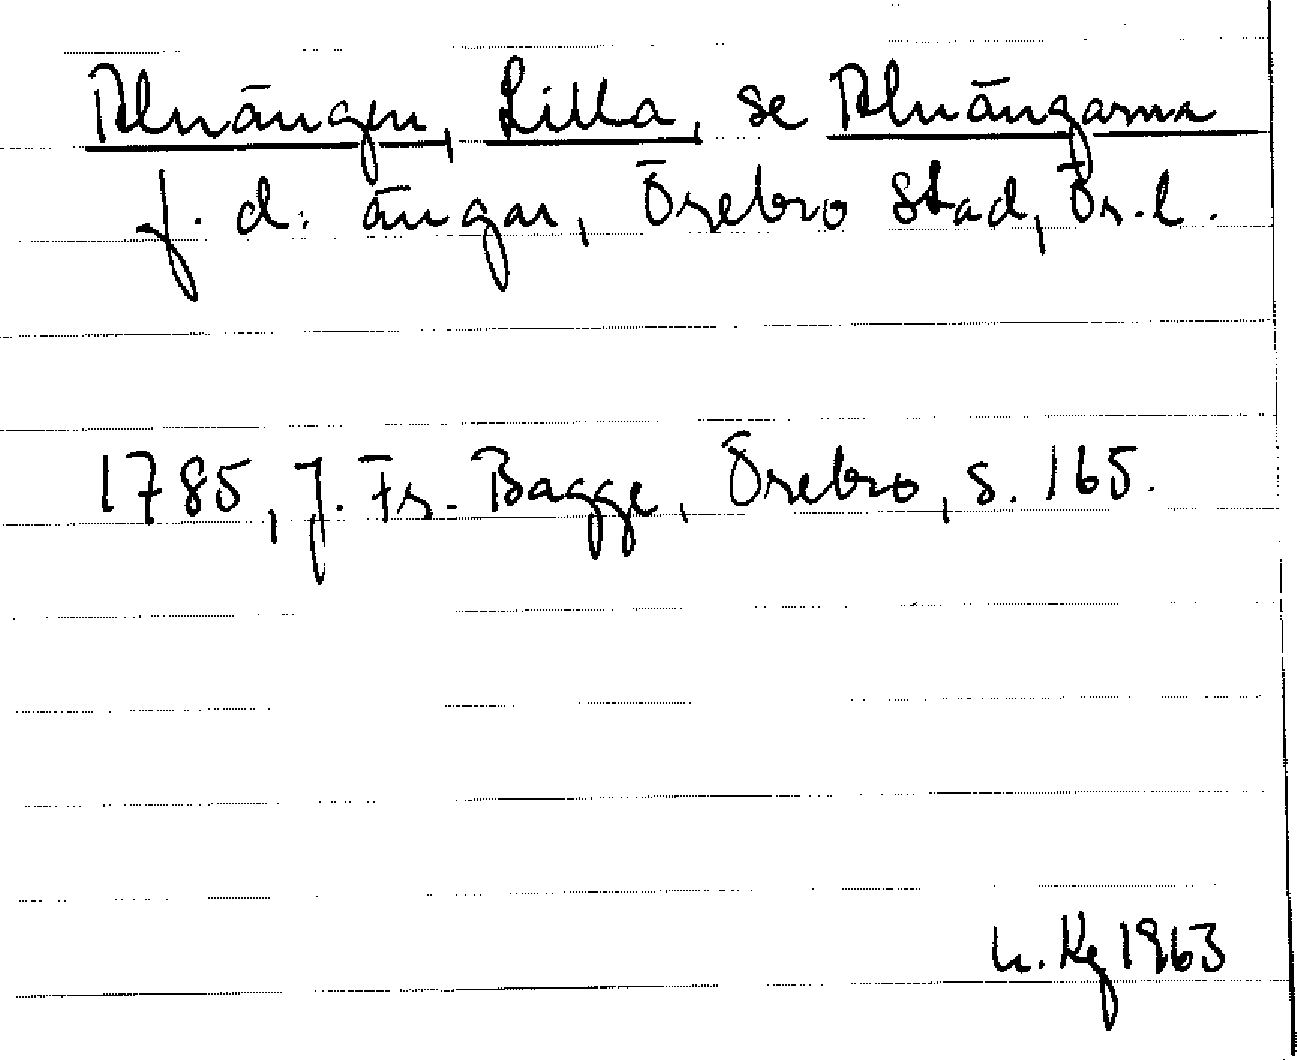 Alnängen, Lilla, se Alnängarna
f. d. ängar, Örebro stad, Ör. l.
1785, J. Fr. Bagge, Örebro, s. 165.
h. Kg 1963